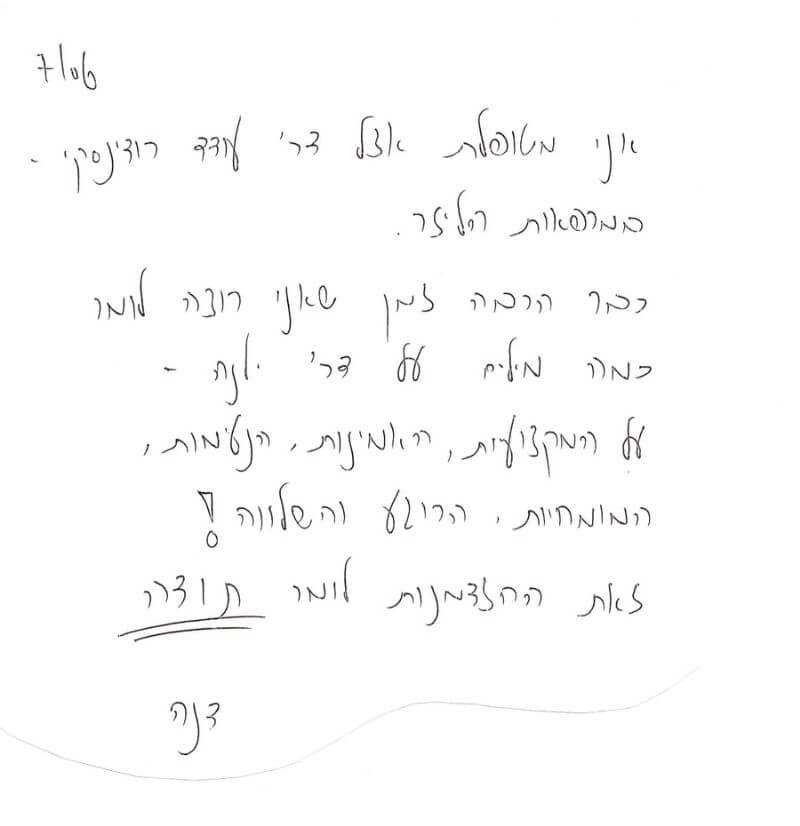 אני מטופלת אצל דר' עודד רודינסקי -
במרפאות הליזר.
כבר הרבה זמן שאני רוצה לומר
כמה מילים על דר' ילנה -
על המקצועיות, האמינות, הנעימות,
המומחיות, הרוגע והשלווה!
זאת ההזדמנות לומר תודה
דנה